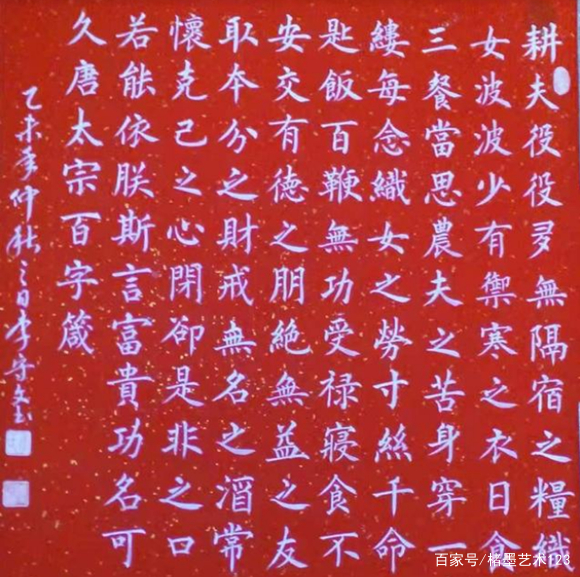 耕夫役役多無隔宿之糧織
女波波少有禦寒之衣日食
三餐當思農夫之苦身穿一
縷每念織女之勞寸絲千命
匙飯百鞭無功受禄寢食不
安交有德之朋絶無益之友
取本分之財戒無名之酒常
懷克己之心閉卻是非之口
若能依朕斯言富貴功名可
久唐太宗百字箴
乙未年仲秋之日李守文書
百家号/楮墨艺术123